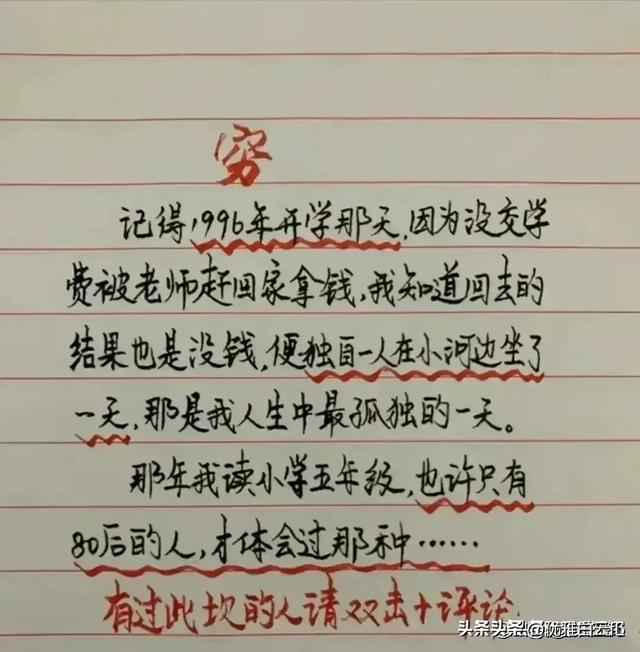 穷
记得1996年开学那天,因为没交学
费被老师赶回家拿钱,我知道回去的
结果也是没钱,便独自一人在小河边坐了
一天,那是我人生中最孤独的一天。
那年我读小学五年级,也许只有
80后的人,才体会过那种……
有过此坎的人请双击+评论.
头条头条@优雅白云払